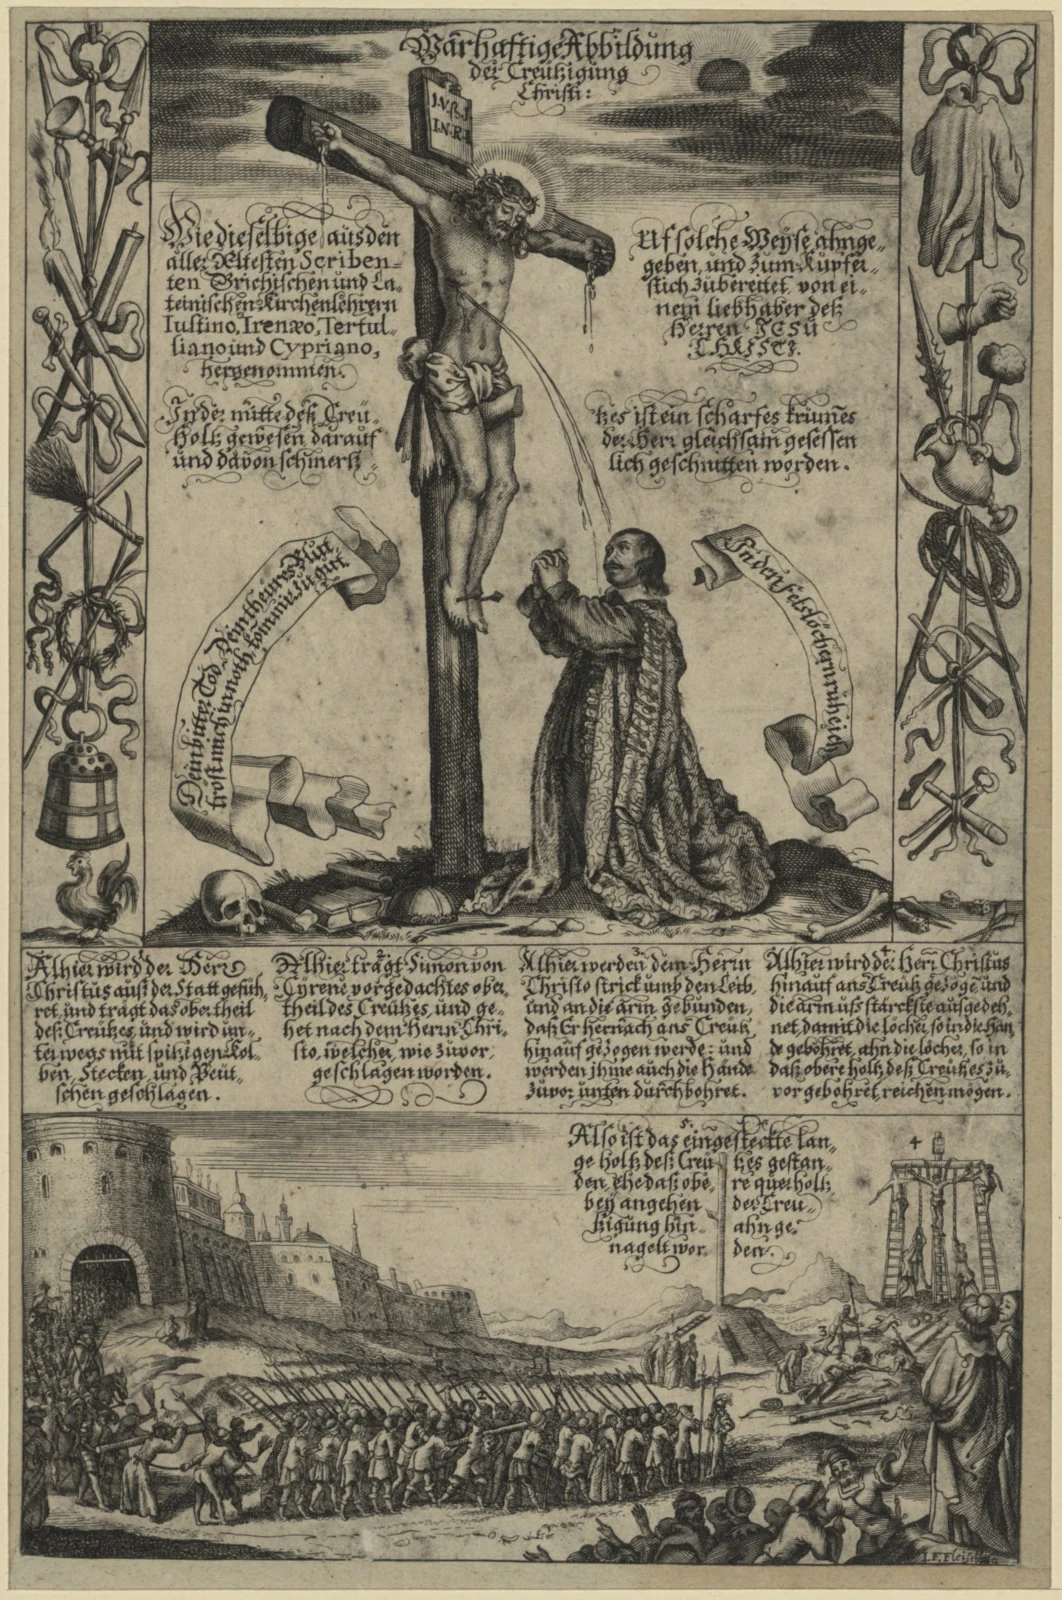 Warhafftige Abbildung
der Creützigung
Christi:
I.N.R.I.
Wie dieselbige aus den
aller Ältesten Scriben-
ten Grichischen und La-
teinischen Kirchenlehrern
Iustino, Irenæo, Tertul-
liano und Cypriano,
hergenommen.
Uf solche Weÿse ahnge-
geben, und zum Kupfer-
stich zubereitet, von ei-
nem liebhaber deß
Herren JESU
CHRISTI.
In der mitte deß Creu-
holtz gewesen darauf
und davon schmertz-
tzes ist ein scharfes krum̄es
der Herr gleichsam gesessen
lich geschnitten worden.
Dein bitter Tod Dein theures Blut
tröst mich in noth, kommt mir zu gut
In den felslöchern ruhe ich
1.
Alhier wird der Herr
Christus auß der Statt gefüh-
ret, und trägt das obertheil
deß Creutzes, und wird un-
terwegs mit spitzigen Kol-
ben, Stecken, und Peüt-
schen geschlagen.
2.
Alhier trägt Simon von
Cyrene vorgedachtes ober-
theil des Creutzes, und ge-
het nach dem Herrn Chri-
sto, welcher, wie zuvor,
geschlagen worden.
3.
Alhier werden dem Herrn
Christo strick umb den Leib,
und an die arm gebunden,
daß Er hernach ans Creutz
hinauf gezogen werde: und
werden ihme auch die Hände
zuvor unten durchbohret.
4.
Alhier wird der Herr Christus
hinauf ans Creutz gezogē und
die arm ufs stärckste ausgedeh-
net, damit die löcher, so in die Hän
de gebohret, ahn die löcher, so in
daß obere holtz deß Creutzes zu-
vor gebohret, reichen mögen.
5.
Also ist das eingesteckte lan-
ge holtz deß Creu tzes gestan-
den, ehe daß obe, re querholtz
beÿ angehen der Creu-
tzigung hin- ahn ge-
nagelt wor- den.
4
3
2